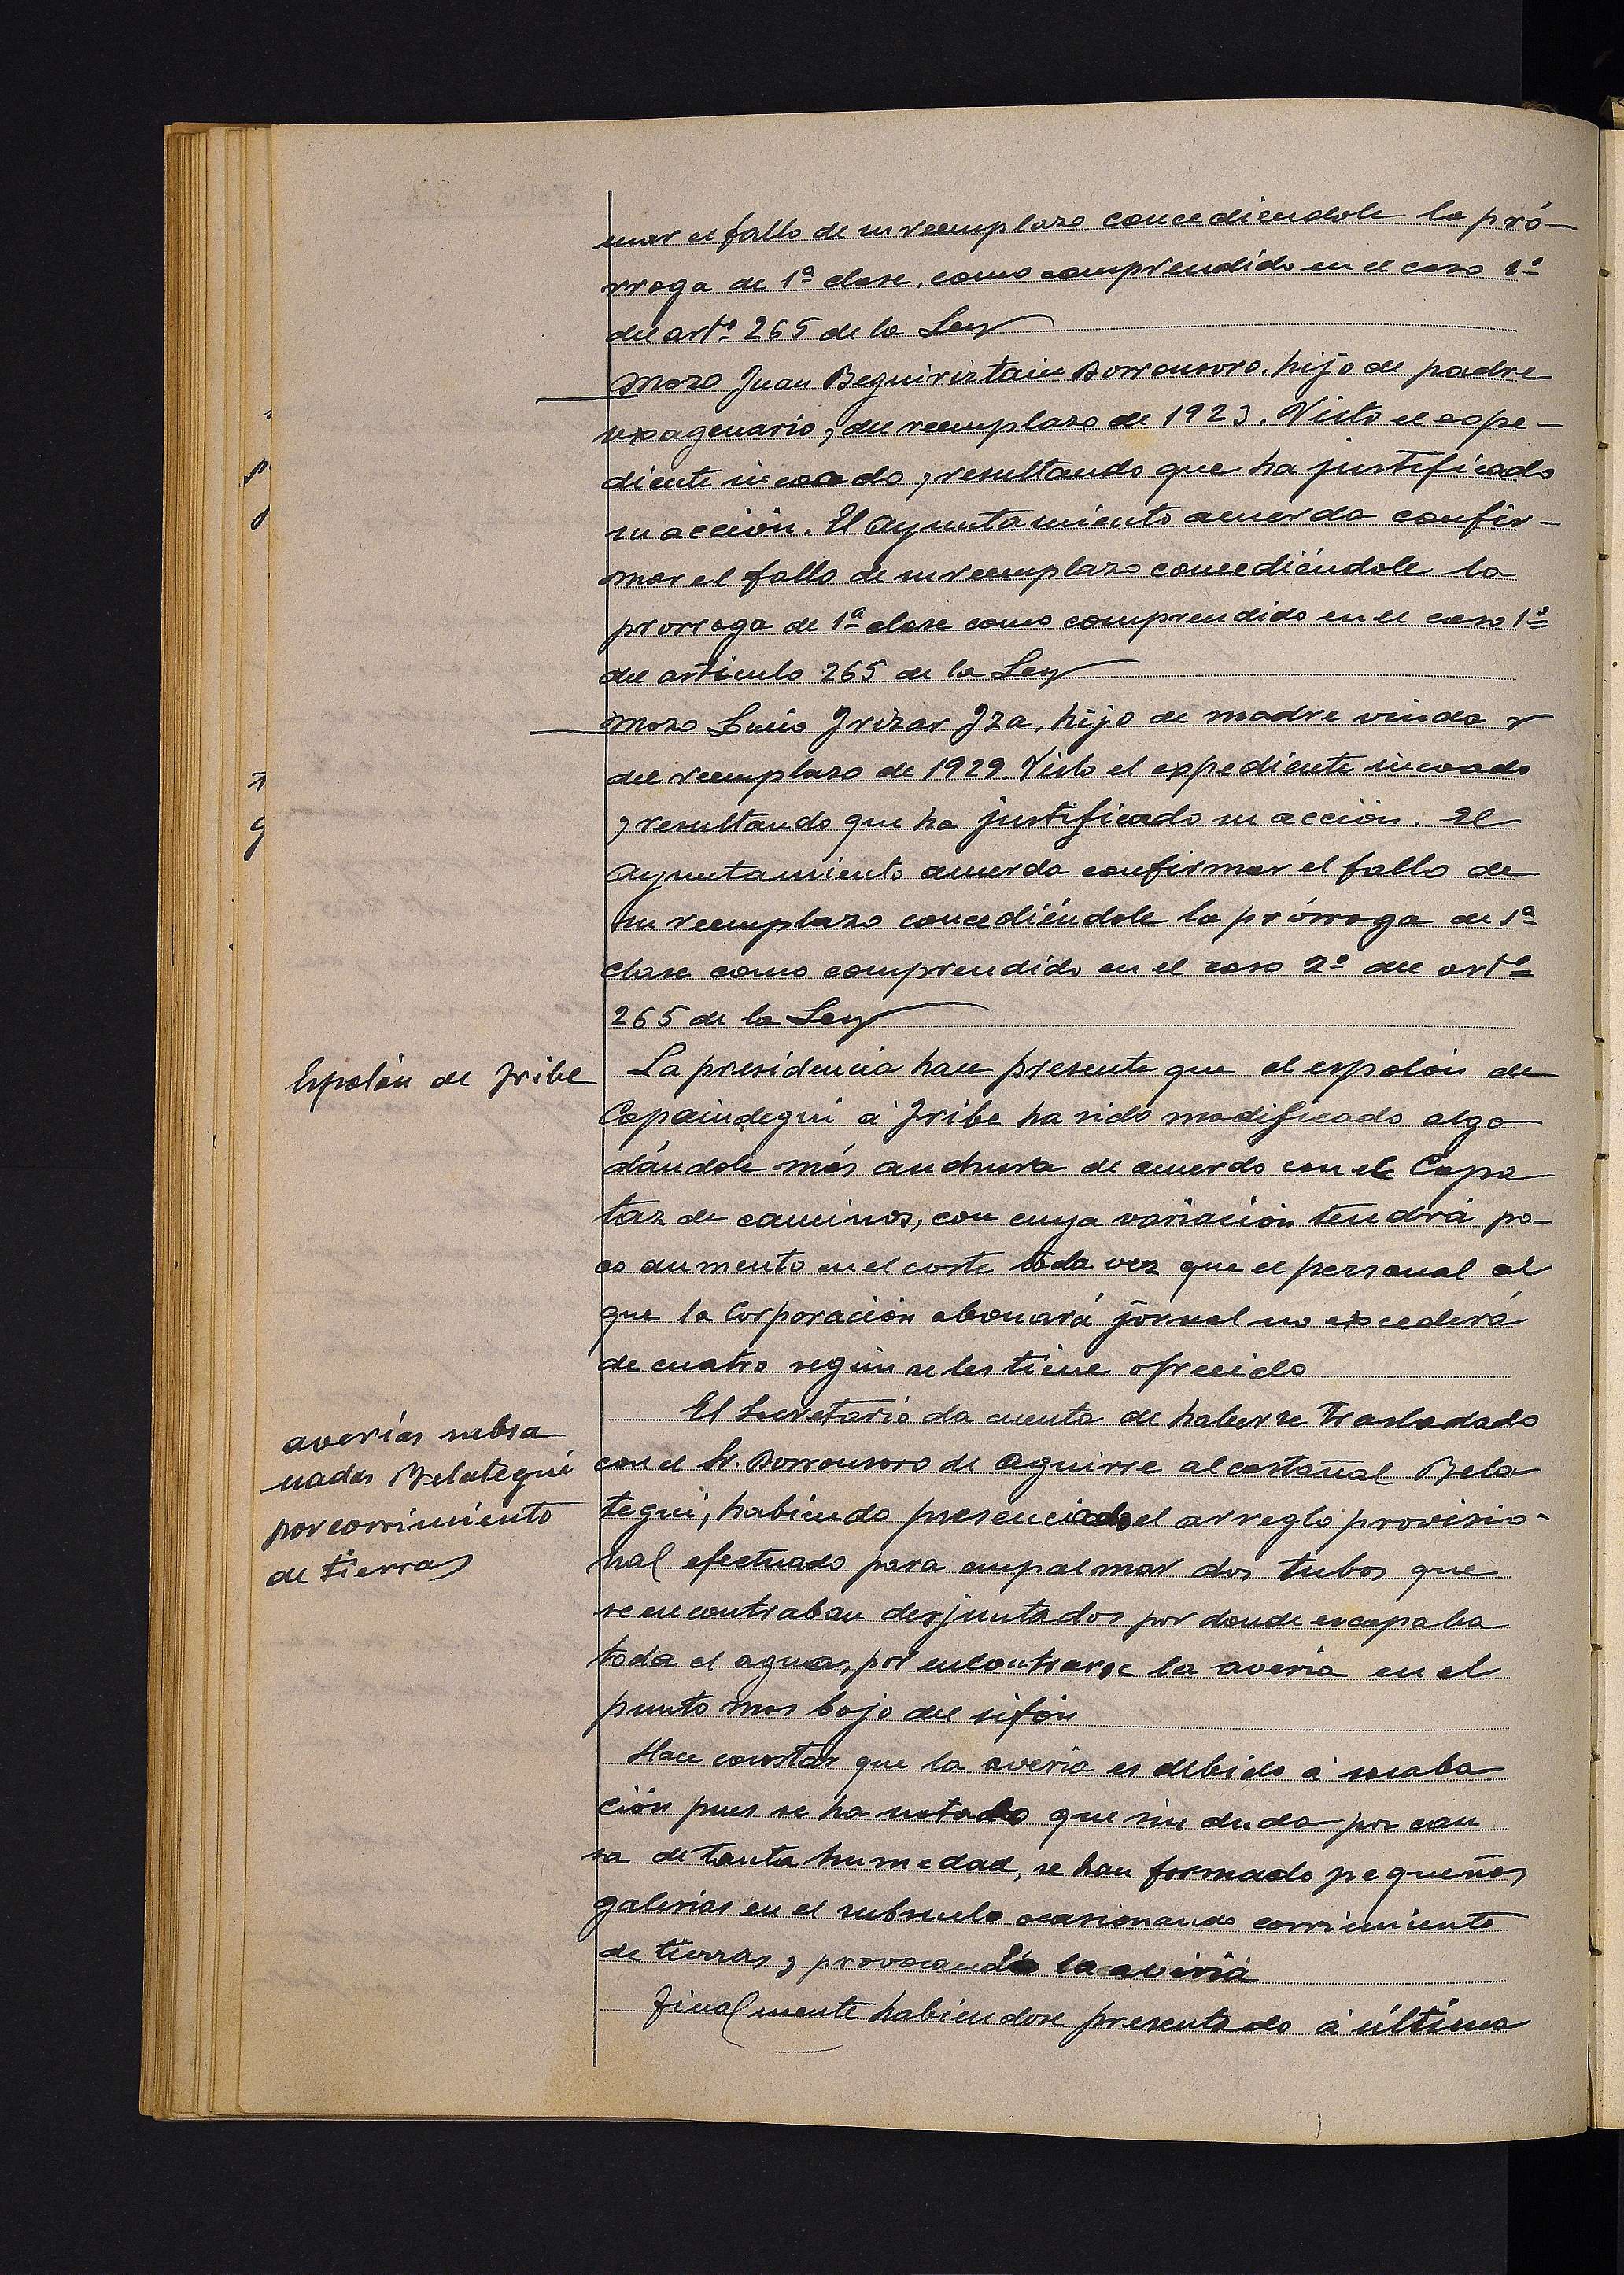 mar el fallo de su reemplazo concediendole la pró-
rroga de 1ª clase, como comprendido en el caso 1º
del artº 265 de la Ley
Mozo Juan Beguiristain Dorronsoro. hijo de padre
sexagenario, del reemplazo de 1923. Visto el expe-
diente incoado y resultando que ha justificado
su acción. El Ayuntamiento acuerda confir-
mar el fallo de su reemplazo concediéndole la
prorroga de 1ª clase como comprendido en el caso 1º
del articulo 265 de la Ley
Mozo Lucio Irizar Iza, hijo de madre viuda y
del reemplazo de 1929. Visto el expediente incoado
y resultando que ha justificado su acción. El
Ayuntamiento acuerda confirmar el fallo de
su reemplazo concediéndole la prórroga de 1ª
clase como comprendido en el caso 2º del artº
265 de la Ley
Espolón de Iribe
La presidencia hace presente que el espolón de
Capaindegui á Iribe ha sido modificado algo
dándole más anchura de acuerdo con el Capa
taz de caminos, con cuya variación tendrá po-
co aumento en el coste toda vez que el personal al
que la Corporación abonará jornal no excederá
de cuatro según se les tiene ofrecido
averías subsa
nadas Belategui
por corrimiento
de tierras
El Secretario da cuenta de haberse trasladado
con el Sr. Dorronsoro de Aguirre al castañal Bela
tegui, habiendo presenciado el arreglo provisio-
nal efectuado para empalmar dos tubos que
se encontraban desjuntados por donde escapaba
toda el agua, por encontrarse la averia en el
punto mas bajo del sifón
Hace constar que la averia es debido á socaba
ción pues se ha notado que sin duda por cau
sa de tanta humedad, se han formado pequeñas
galerias en el subsuelo ocasionando corrimiento
de tierras y provocando la averiá
Finalmente habiendose presentado á última